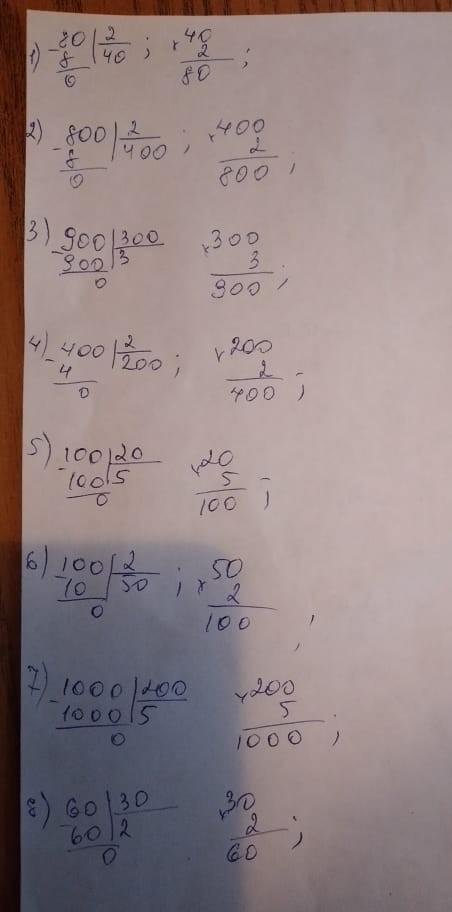 1) -80 | 2 ; ×40
8 | 40 2 ;
0 80
2) -800 | 2 ; ×400
8 | 400 2
0 800 ;
3) -900 | 300 ×300
900 | 3 3
0 900 ;
4) -400 | 2 ×200
4 | 200 ; 2
0 400 ;
5) -100 | 20 ×20
100 | 5 5
0 100 ;
6) -100 | 2 ; ×50
10 | 50 2
0 100 ;
7) -1000 | 200 ×200
1000 | 5 5
0 1000 ;
8) 60 | 30 ×30
60 | 2 2 ;
0 60